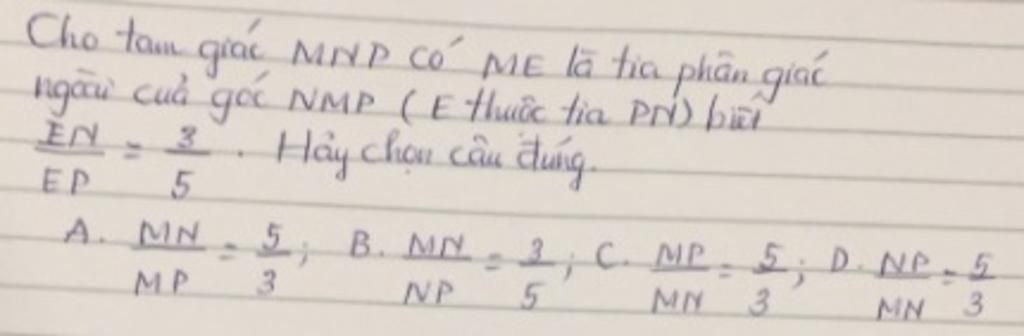 Cho tam giác MNP có ME là tia phân giác
ngoài cuả góc NMP (E thuộc tia PN) biết
EN/EP = 3/5. Hãy chọn câu đúng.
A. MN/MP = 5/3; B. MN/NP = 3/5; C. MP/MN = 5/3; D. NP/MN = 5/3